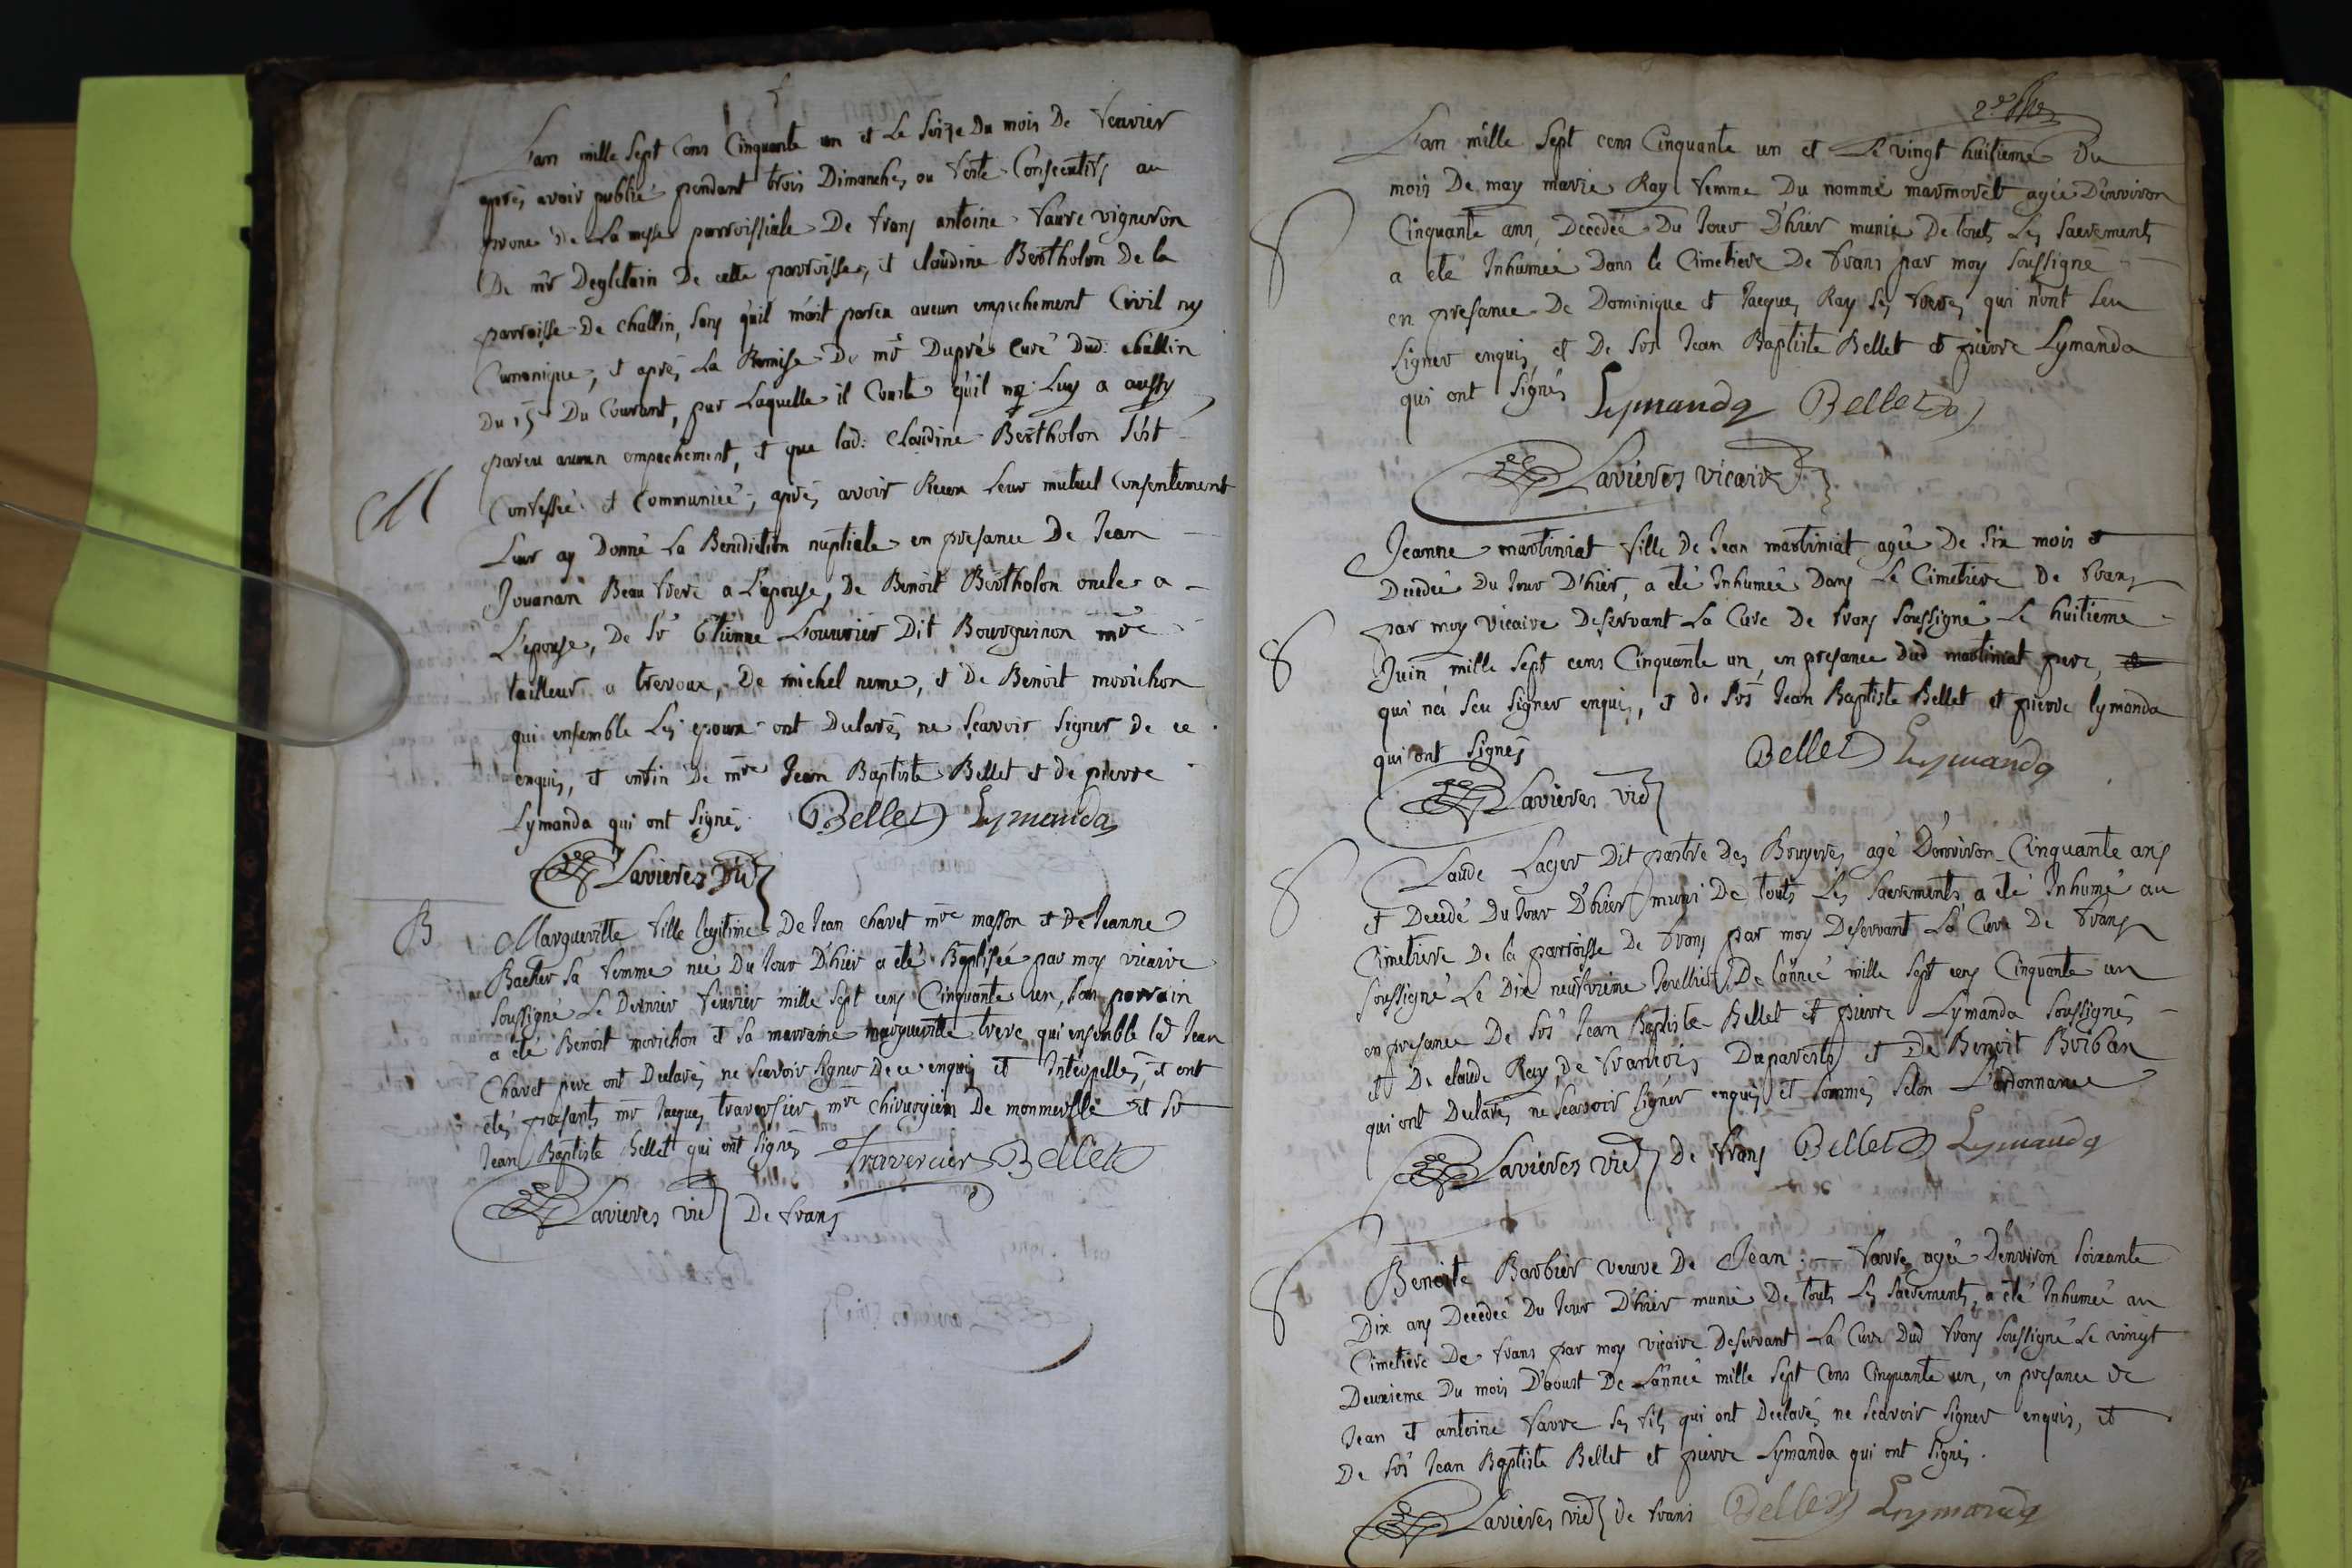 L'an mille Sept Cens Cinquante un et Le Seize Du mois De Fevrier
après avoir publié pendant trois Dimanches ou feste Consecutifs au
prone de La messe parroissiale De frans antoine Favre vigneron
De mr Degletain De cette parroisse, et claudine Bertholon De la
parroisse De challin, sans qu'il m'ait pareu aucun empechement Civil ny
Canonique, et après La Remise De mr Dupré Curé Dud. challin
Du 15e Du Courant, par Laquelle il Conste qu'il Luy a aussy
pareu aucun empechement, et que lad. claudine Bertholon s'est
M
Confessée et Communiée, après avoir Receu Leur mutuel Consentement
Leur ay Donné La Benidiction nuptiale en presance De Jean
Jouanan Beau frere a L'epouse, De Benoit Bertholon oncle a
L'epouse, De Sr Etienne Louvrier Dit Bourguinon mre
tailleur a trevoux, De michel neme, et De Benoit morichon
qui ensemble Les epoux ont Declarés ne Scavoir Signer de ce
enquis, et enfin De mre Jean Baptiste Bellet et de pierre
Lymanda qui ont Signés. Bellet Lymanda
Lavieres vic
B
Margueritte fille legitime De Jean chavet mre masson et De Jeanne
Backer sa femme née Du Jour D'hier a été Baptisée par moy vicaire
Soussigné Le Dernier fevrier mille Sept cens Cinquante un, Son parrain
a été Benoit morichon et Sa marraine margueritte trere qui ensemble led Jean
Chavet pere ont Declarés ne Scavoir Signer De ce enquis et Interpellés, et ont
étés presants mr Jacques traversier mre chirurgien De monmerlle et Sr
Jean Baptiste Bellet qui ont Signés Travercier Bellet
Lavieres vic De frans
L'an mille Sept cens Cinquante un et Le vingt huitieme Du
mois De may marie Ray femme Du nommé marmoret agée D'environ
Cinquante ans, Decedée Du Jour D'hier munie De touts Les Sacrements
a eté Inhumée Dans le Cimetiere De frans par moy Soussigné
en presance De Dominique et Jacques Ray Ses freres, qui n'ont Seu
Signer enquis, et De Srs Jean Baptiste Bellet et pierre Lymanda
qui ont Signés Lymanda Bellet
Lavieres vicaire
Jeanne martiniat fille de Jean martiniat agée De Six mois et
Decedée Du Jour D'hier, a eté Inhumée Dans Le Cimetiere De frans
par moy vicaire Deservant La Cure De frans Soussigné Le huitieme
Juin mille Sept cens Cinquante un, en presance Dud martiniat pere,
qui n'a Seu Signer enquis, et de Srs Jean Baptiste Bellet et pierre lymanda
qui ont Signés Bellet Lymanda
Lavieres vic
Claude Lager Dit partre Des Bruyeres agé D'environ Cinquante ans
et Decedé Du Jour D'hier muni De touts Les Sacrements, a été Inhumé au
Cimetiere De la parroisse De frans par moy Deservant La Cure De frans
Soussigné Le Dix neufvieme Jeuillet De l'année mille Sept cens Cinquante un
en presance De Srs Jean Baptiste Bellet et pierre Lymanda Soussignés
et De claude Ray, De francois Duparests et De Benoit Briban
qui ont Declarés ne Scavoir Signer enquis et Sommés Selon L'ordonnance
Lavieres vic De frans Bellet Lymanda
Benoite Barbier veuve De Jean favre agée D'environ Soixante
Dix ans Decedée Du Jour D'hier munie De touts Les Sacrements, a été Inhumée au
Cimetiere De frans par moy vicaire Deservant La Cure Dud frans Soussigné Le vingt
Deuxieme Du mois D'aoust De L'année mille Sept Cens Cinquante un, en presance de
Jean et antoine favre Ses fils qui ont Declarés ne Scavoir Signer enquis, et
De Srs Jean Baptiste Bellet et pierre Lymanda qui ont Signés.
Lavieres vic de frans Bellet Lymanda